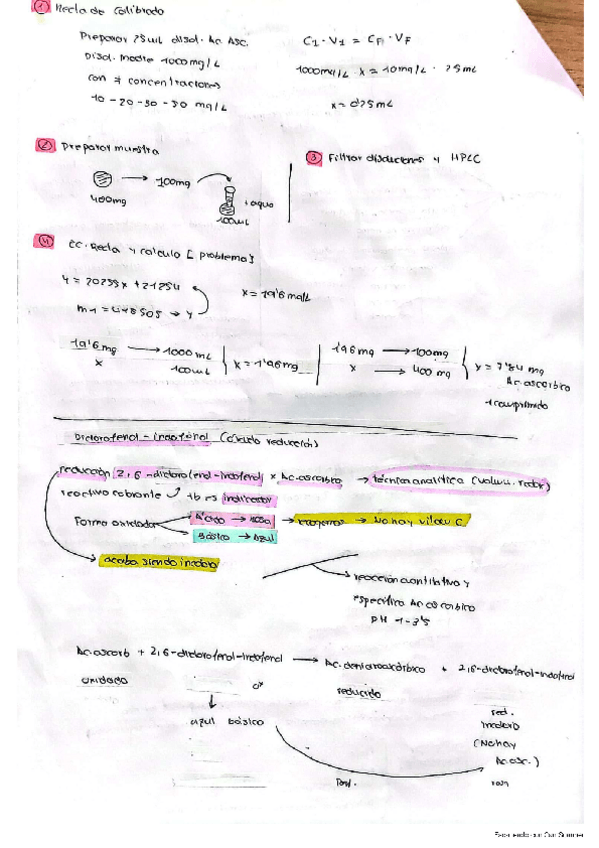 ① Recta de calibrado
Preparar 25mL disol. Ac. Asc.
Disol. madre 1000mg/L
con ≠ concentraciones
10-20-30-50 mg/L
C₁ · V₁ = C_F · V_F
1000mg/L · x = 10mg/L · 25mL
x = 0'25mL
② Preparar muestra
400mg → 100mg
+ agua
100mL
③ Filtrar disoluciones y HPLC
④ EC. Recta y calculo [problema]
x = 19'6 mg/L
19'6 mg → 1000 mL
x 100mL
x = 1'96mg
1'96 mg → 100mg
x → 400 mg
x = 7'84 mg
Ac. ascorbico
1 comprimido
Diclorofenol-indofenol (oxido reducción)
reducción 2,6-diclorofenol-indofenol x Ac. ascorbico → técnica analítica (volum. redox)
tb es indicador
Forma oxidada
Ácido → rosa → No hay vitam C
Básico → Azul
acaba siendo incoloro
reacción cuantitativa y
específica Ac. ascorbico
PH 1-3'5
Ac. ascorb + 2,6-diclorofenol-indofenol → + 2,6-diclorofenol-indofenol
oxidado
ox
reducido
red.
azul básico
incoloro
(No hay
Ac. asc.)